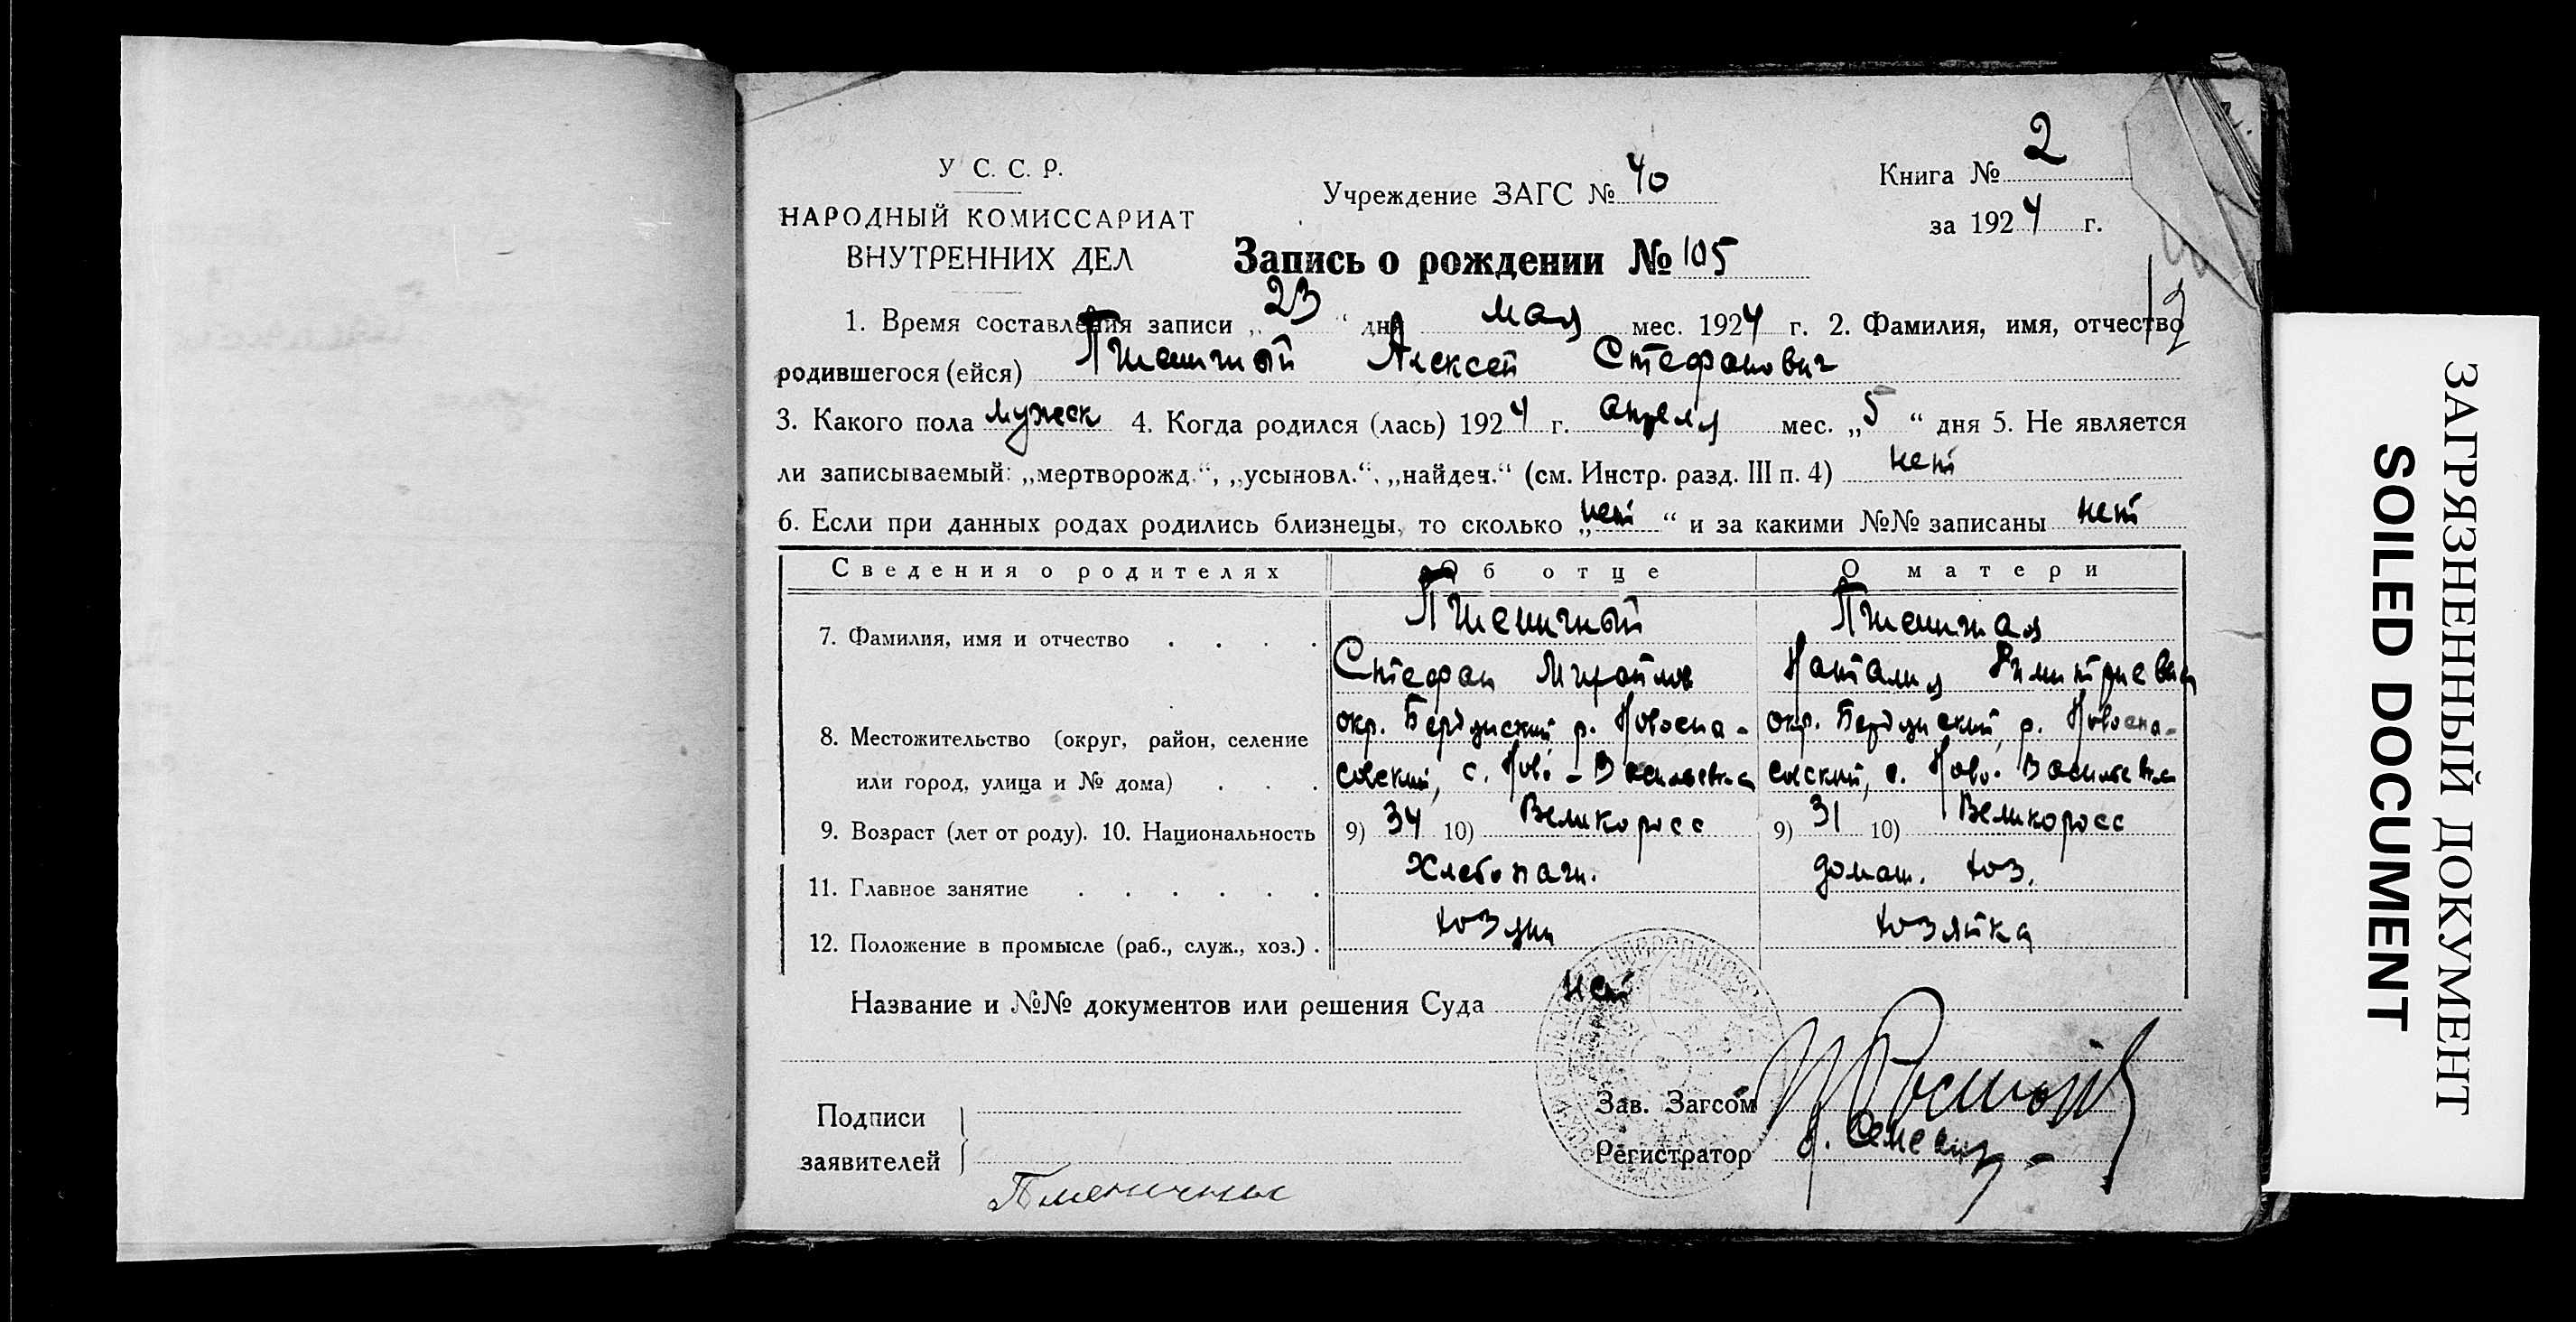 У С. С. Р.
НАРОДНЫЙ КОМИССАРИАТ
ВНУТРЕННИХ ДЕЛ
Учреждение ЗАГС № 40
Книга № 2
за 1924 г.
Запись о рождении № 105
1. Время составления записи „ 23 “ дня мая мес. 1924 г. 2. Фамилия, имя, отчество
родившегося (ейся) Пшеничный Алексей Стефанович
3. Какого пола мужск 4. Когда родился (лась) 1924 г. апреля мес. „5“ дня 5. Не является
ли записываемый: „мертворожд.“, „усыновл.“, „найден.“ (см. Инстр. разд. III п. 4) нет
6. Если при данных родах родились близнецы, то сколько „нет“ и за какими №№ записаны нет
Сведения о родителях Об отце О матери
7. Фамилия, имя и отчество Пшеничный Пшеничная
Стефан Наталия
8. Местожительство (округ, район, селение окр. Бердянский р. Новоспа- окр. Бердянский, р. Новоспа-
или город, улица и № дома) совский, с. Ново-Васильевка совский, с. Ново-Васильевка
9. Возраст (лет от роду). 10. Национальность 9) 34 10) Великоросс 9) 31 10) Великоросс
11. Главное занятие Хлебопаш. домаш. хоз.
12. Положение в промысле (раб., служ., хоз.) хозяин хозяйка
Название и №№ документов или решения Суда нет
Подписи
заявителей
Пшеничны
Зав. Загсом
Регистратор
ЗАГРЯЗНЕННЫЙ ДОКУМЕНТ
SOILED DOCUMENT